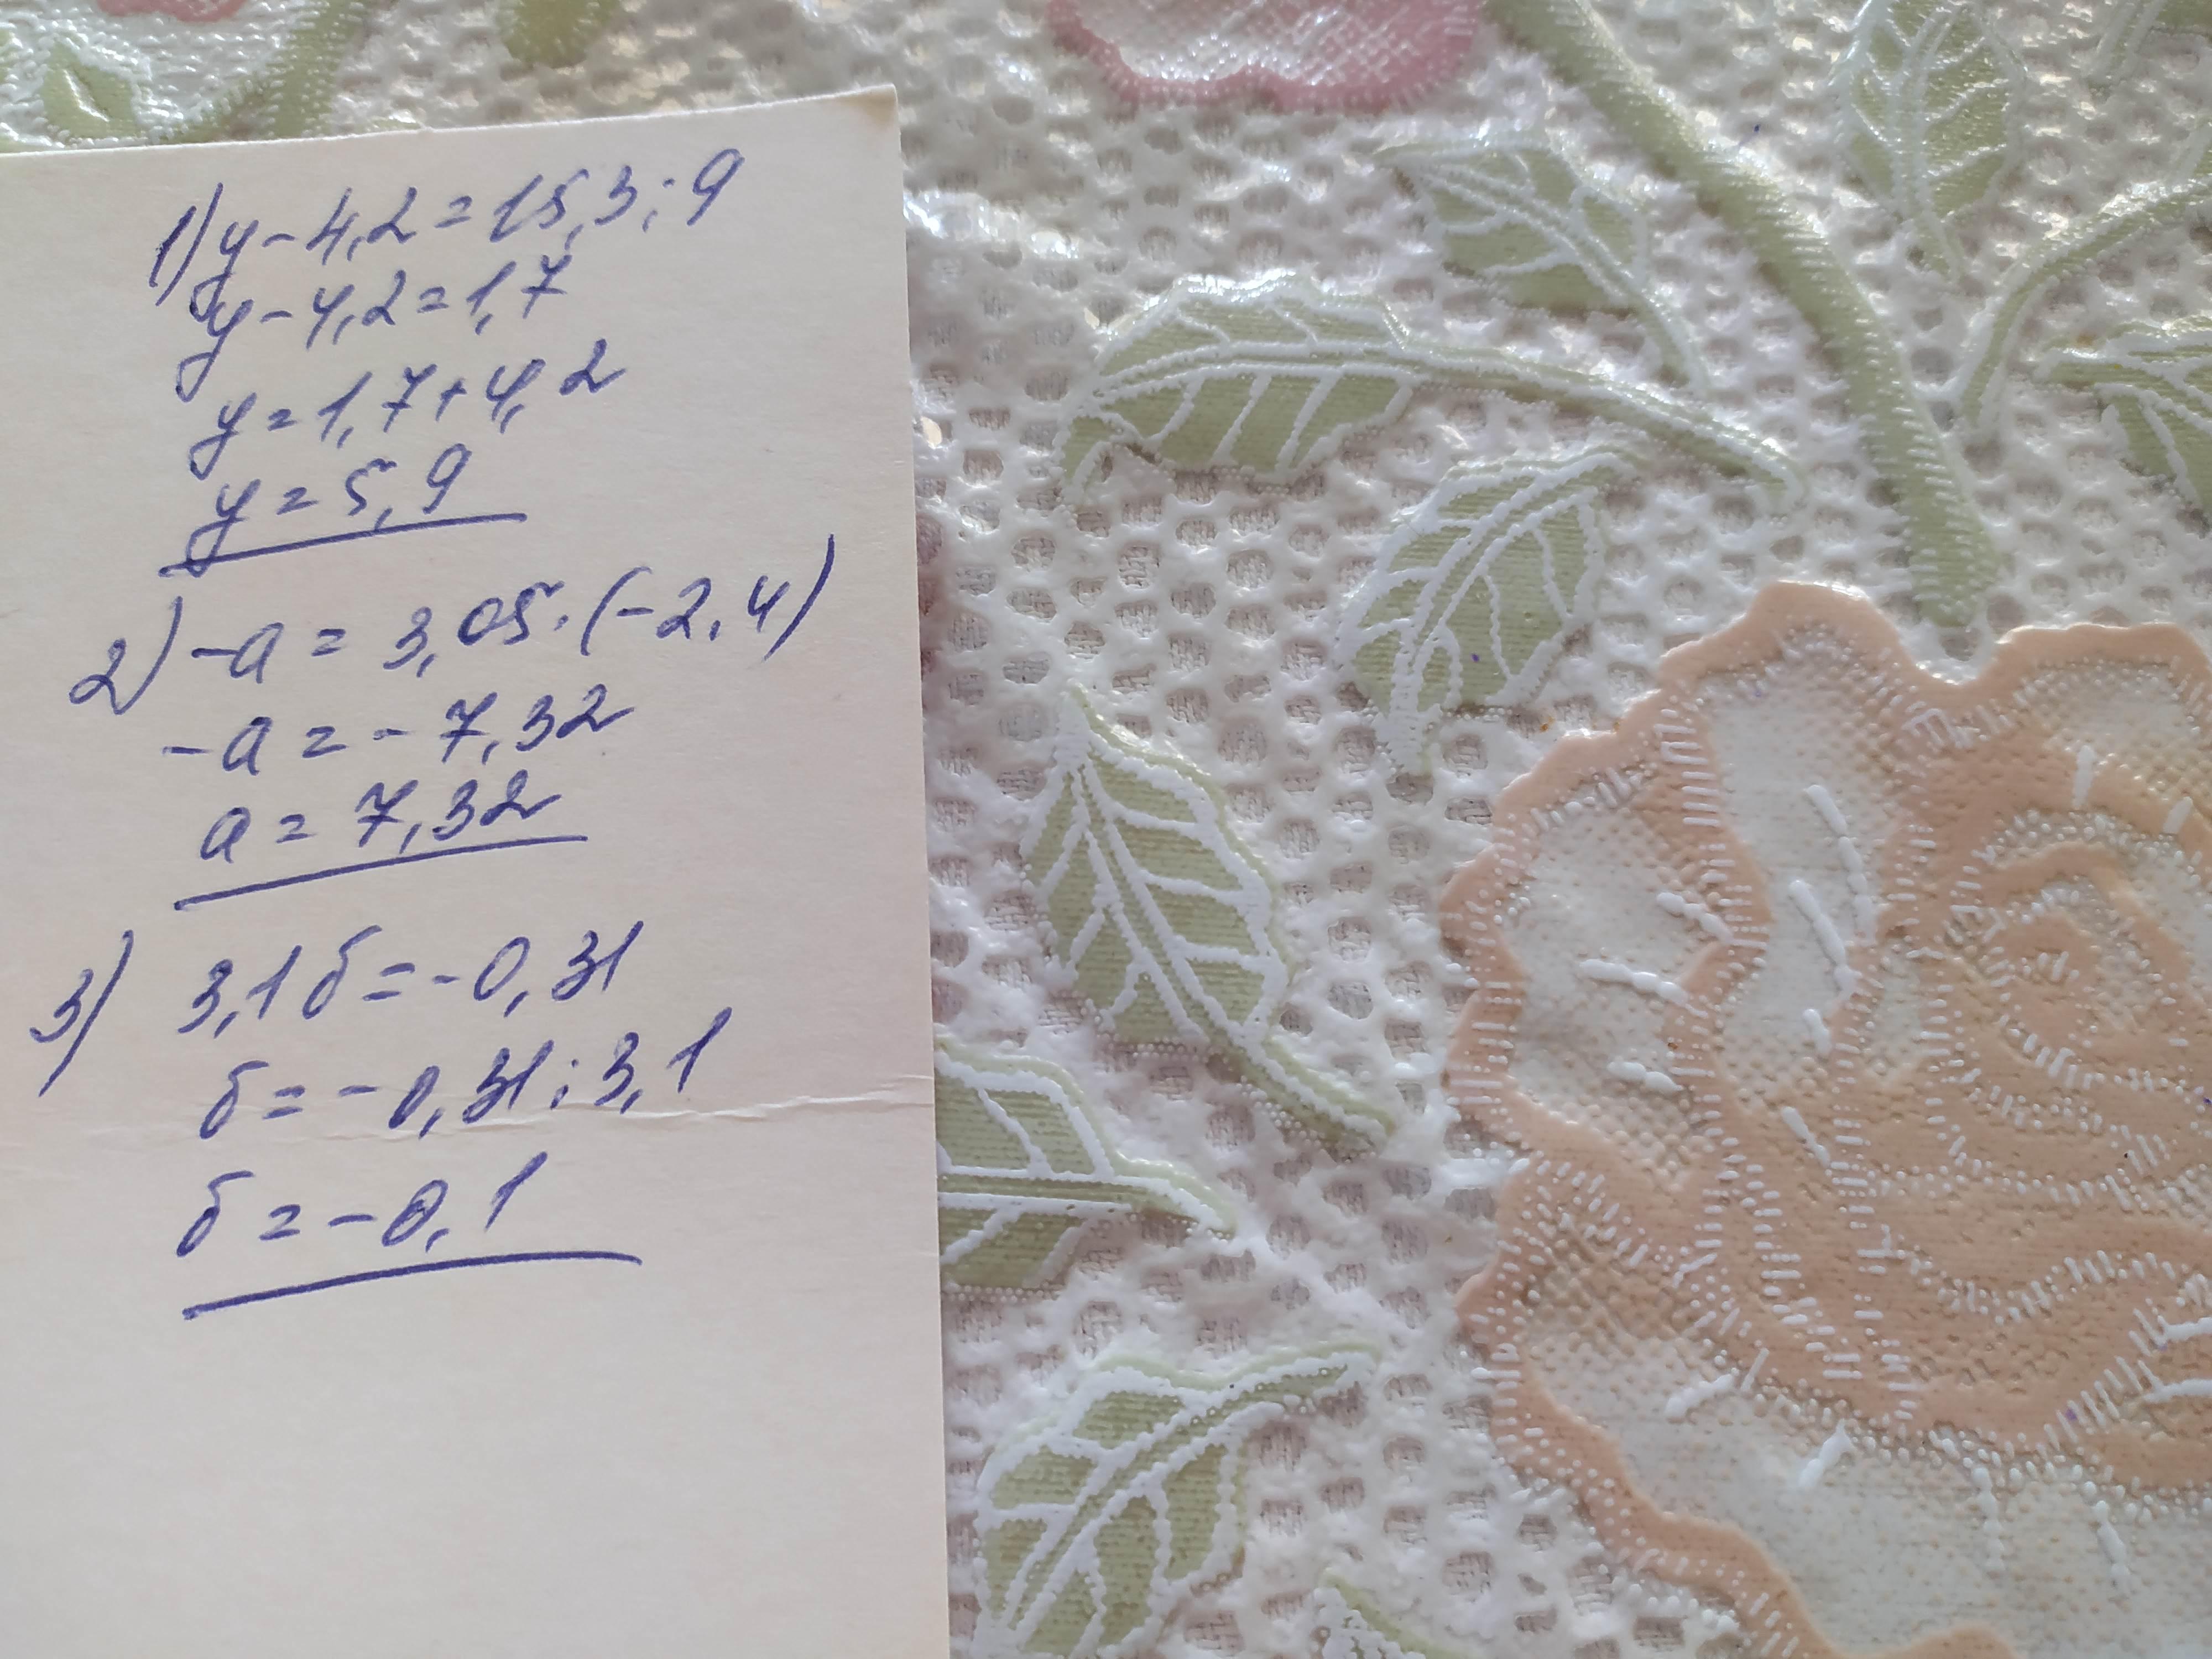 1) y-4,2=15,3:9
y-4,2=1,7
y=1,7+4,2
y=5,9
2) -a=3,05·(-2,4)
-a=-7,32
a=7,32
3) 3,1б=-0,31
б=-0,31:3,1
б=-0,1